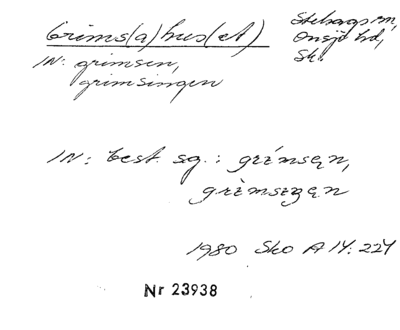 Grims(a)hus(et)
Stehags sn,
Onsjö hd,
Sk.
IN: grimsen,
grimsingen
IN: best. sg.: grímsęn,
grìmseŋęn
1980 Sko A 14:224
Nr 23938